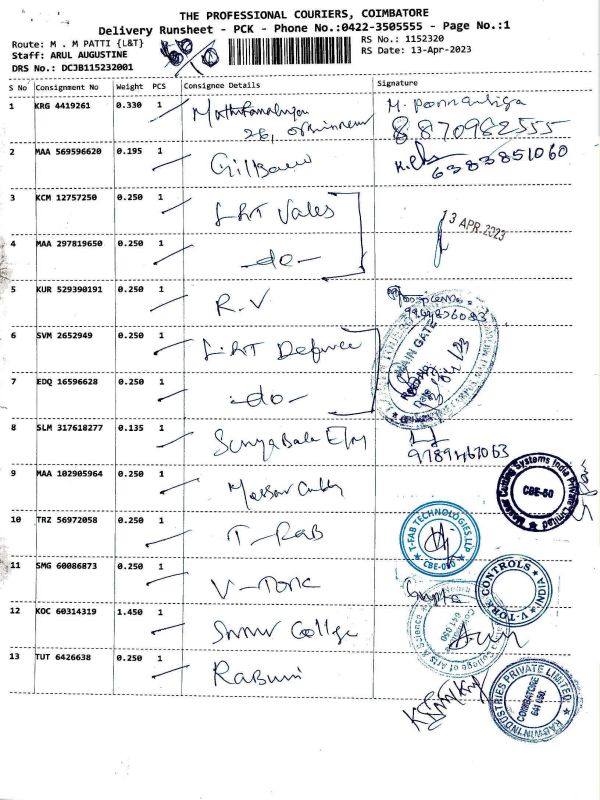 THE PROFESSIONAL COURIERS, COIMBATORE
Delivery Runsheet - PCK - Phone No.:0422-3505555 - Page No.:1
Route: M . M PATTI {L&T}
RS No.: 1152320
Staff: ARUL AUGUSTINE
RS Date: 13-Apr-2023
DRS No.: DCJB115232001
S No Consignment No Weight PCS Consignee Details Signature
1 KRG 4419261 0.330 1
8870982555
2 MAA 569596620 0.195 1
6383851060
3 KCM 12757250 0.250 1 L&T Vales
13 APR 2023
4 MAA 297819650 0.250 1 -do-
5 KUR 529390191 0.250 1 R.V
6 SVM 2652949 0.250 1 L&T Defence
MAIN GATE
7 EDQ 16596628 0.250 1 -do-
8 SLM 317618277 0.135 1
9789467063
9 MAA 102905964 0.250 1
CBE-60
10 TRZ 56972058 0.250 1 T-Fab
T-FAB TECHNOLOGIES.LLP
11 SMG 60086873 0.250 1 V-Tork
V-TORK CONTROLS INDIA
12 KOC 60314319 1.450 1 College
College of Arts & Science
13 TUT 6426638 0.250 1 Rabwin
RABWIN INDUSTRIES PRIVATE LIMITED
COIMBATORE
641 050.